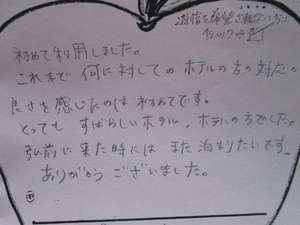 返信を希望されない方は
チェック
初めて利用しました。
これまで何に対してのホテルの方の対応の
良さを感じたのは初めてです。
とっても すばらしいホテル、ホテルの方でした。
弘前に来た時には また泊まりたいです。
ありがとう ございました。